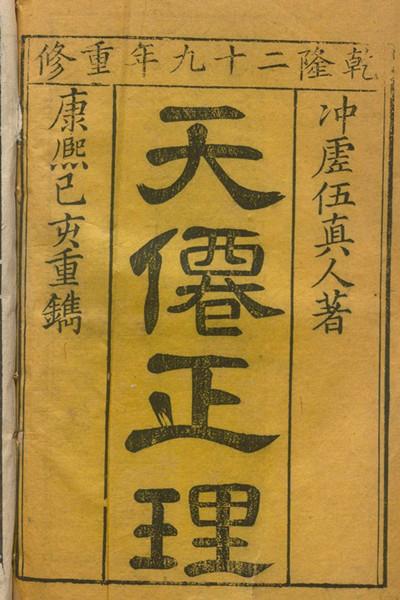 乾隆二十九年重修
冲虛伍真人著
天僊正理
康熙己亥重鐫